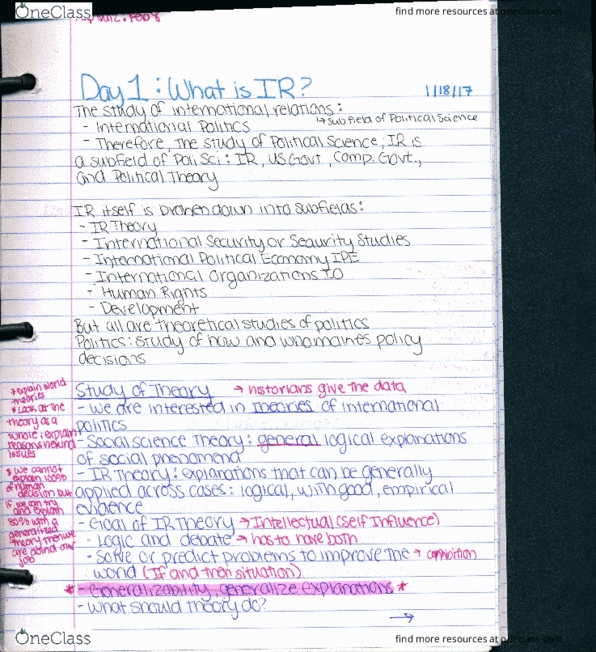 OneClass
find more resources at oneclass.com
quiz: Feb 8
Day 1: What is IR?
1/18/17
The study of international relations:
↳ subfield of Political Science
- International Politics
- Therefore, the study of Political Science, IR is
a subfield of Poli Sci: IR, US Govt, Comp. Govt.,
and Political Theory
IR itself is broken down into subfields:
- IR Theory
- International Security or Security Studies
- International Political Economy IPE
- International Organizations IO
- Human Rights
- Development
But all are theoretical studies of politics
Politics: study of how and who makes policy
decisions
Study of Theory → historians give the data
- We are interested in theories of international
politics
- Social science Theory: general logical explanations
of social phenomena
- IR Theory: explanations that can be generally
applied across cases: logical, with good, empirical
evidence
- Goal of IR Theory → Intellectual (Self Influence)
- Logic and debate → has to have both
- Solve or predict problems to improve the →
world (If and then situation)
* - Generalizability, generalize explanations *
- What should theory do?
→
* explain world
theories
* Look at the
theory as a
whole; explain
reasons behind
issues
* we cannot
explain 100%
of human
decision but
if we can try
and explain
80% with a
generalized
theory then we
are doing our
job
OneClass
find more resources at oneclass.com